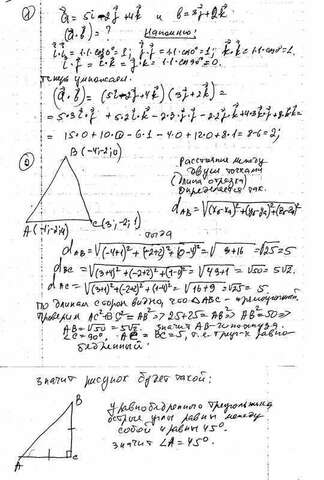 ① a⃗ = 5i⃗ - 2j⃗ + 4k⃗ и b⃗ = 3j⃗ + 2k⃗
(a⃗·b⃗) = ? Напомню!
i⃗·i⃗ = 1·1·cos0° = 1; j⃗·j⃗ = 1·1·cos0° = 1; k⃗·k⃗ = 1·1·cos0° = 1.
i⃗·j⃗ = i⃗·k⃗ = j⃗·k⃗ = 1·1·cos90° = 0.
умножаем.
(a⃗·b⃗) = (5i⃗ - 2j⃗ + 4k⃗)(3j⃗ + 2k⃗) =
= 5·3 i⃗·j⃗ + 5·2 i⃗·k⃗ - 2·3 j⃗·j⃗ - 2·2 j⃗·k⃗ + 4·3 k⃗·j⃗ +
= 15·0 + 10·0 - 6·1 - 4·0 + 12·0 + 8·1 = 8 - 6 = 2;
B(-4; -2; 0)
Расстояние между
двумя точками
(длина отрезка)
определяется так.
A(-1; -2; 4)
C(3; -2; 1)
тогда
d_AB = √(-4+1)² + (-2+2)² + (0-4)² = √9+16 = √25 = 5
d_BC = √(3+4)² + (-2+2)² + (1-0)² = √49+1 = √50 = 5√2.
d_AC = √(3+1)² + (-2+2)² + (1-4)² = √16+9 = √25 = 5.
По длинам сторон видно, что △ABC -
Проверим AC² + BC² = AB² => 25 + 25 = AB² => AB² = 50 =>
AB = √50 = 5√2. значит AB - гипотенуза.
∠C = 90°. AC = BC = 5, т.е. равно-
бедренный.
значит рисунок будет такой:
B
У равнобедренного треугольника
острые углы равны между
собой и равны 45°.
значит ∠A = 45°.
A
C